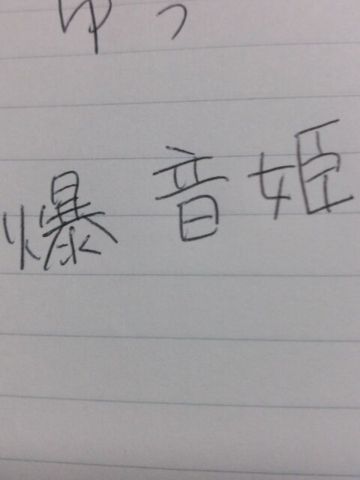 ゆっ
爆音姫